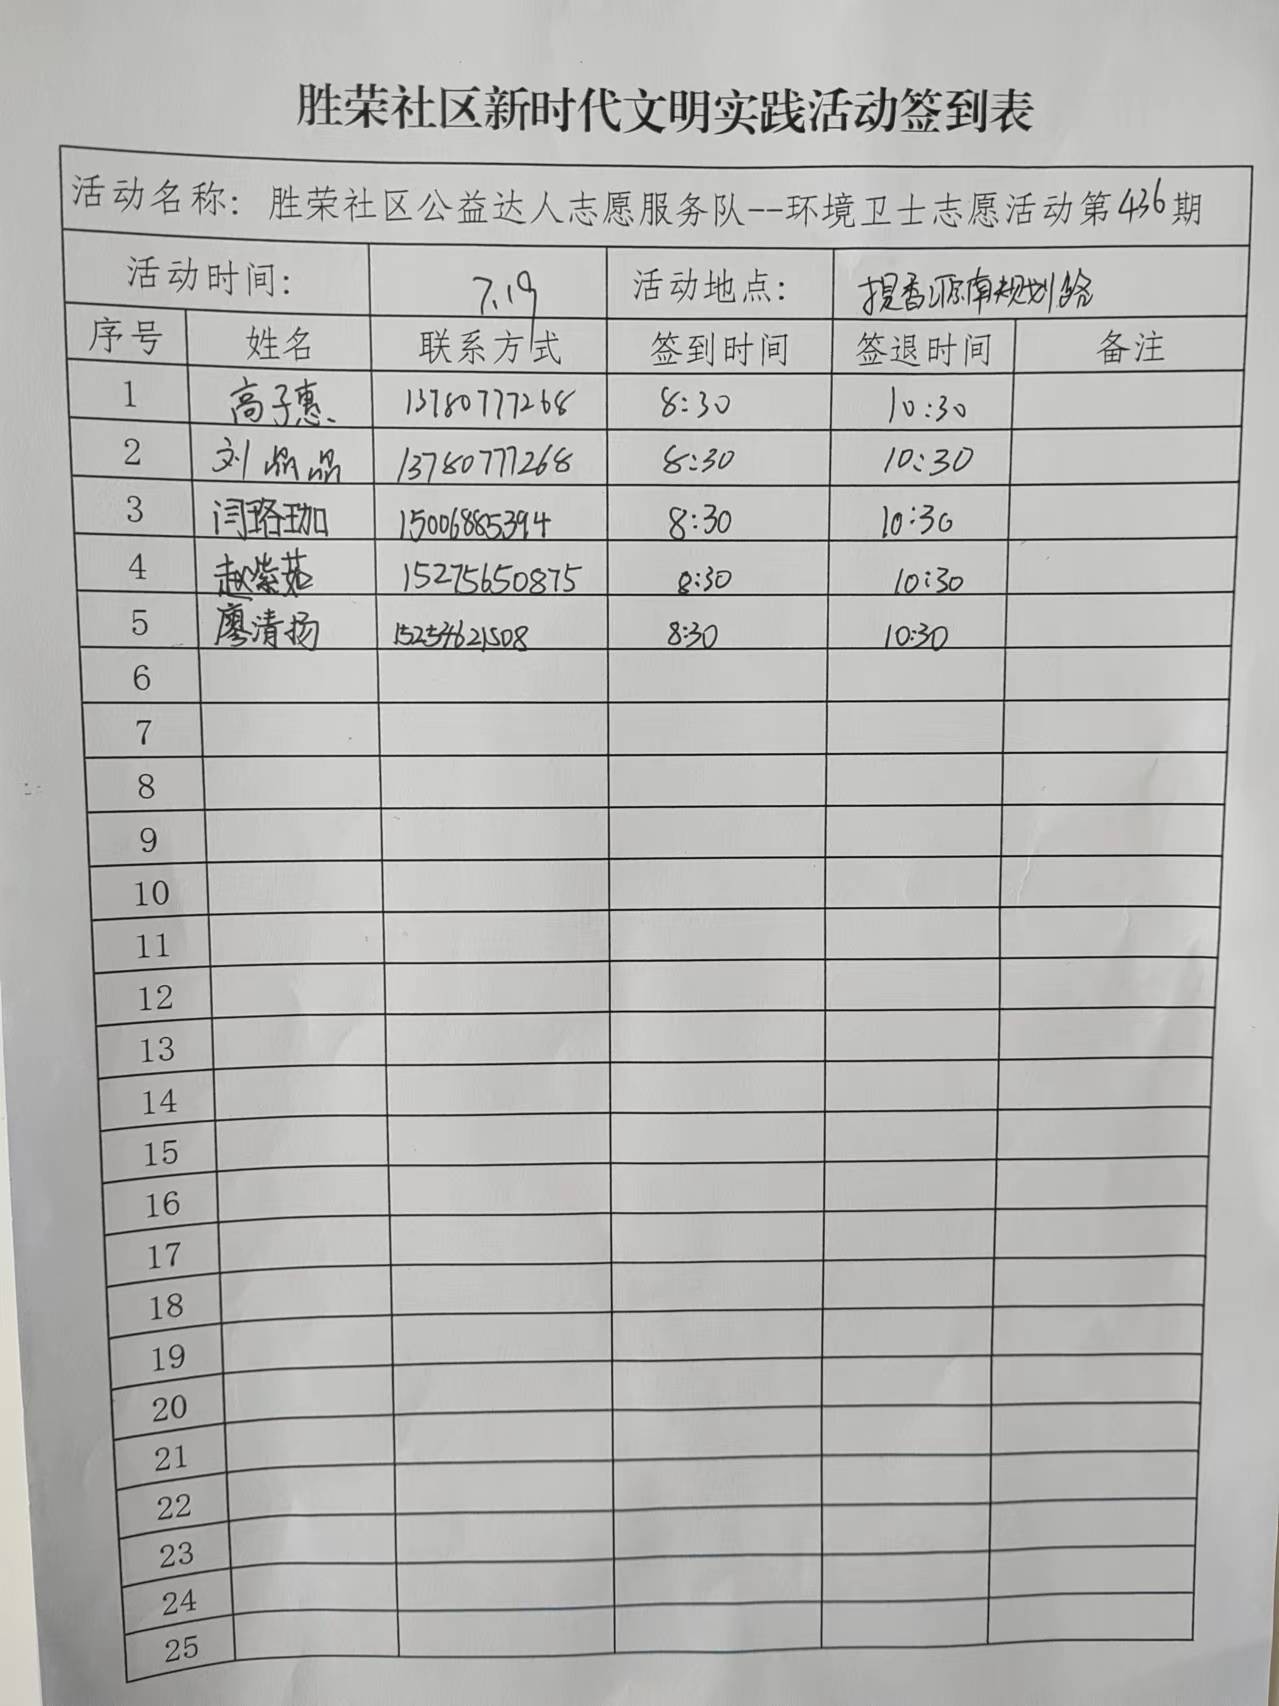 胜荣社区新时代文明实践活动签到表
活动名称：胜荣社区公益达人志愿服务队--环境卫士志愿活动第436期
活动时间： 7.19 活动地点： 提香源南规划路
序号 姓名 联系方式 签到时间 签退时间 备注
1 高子惠 13780777268 8:30 10:30
2 刘晶晶 13780777268 8:30 10:30
3 闫珞珈 15006885394 8:30 10:30
4 赵紫茹 15275650875 8:30 10:30
5 廖清扬 15254621508 8:30 10:30
6
7
8
9
10
11
12
13
14
15
16
17
18
19
20
21
22
23
24
25